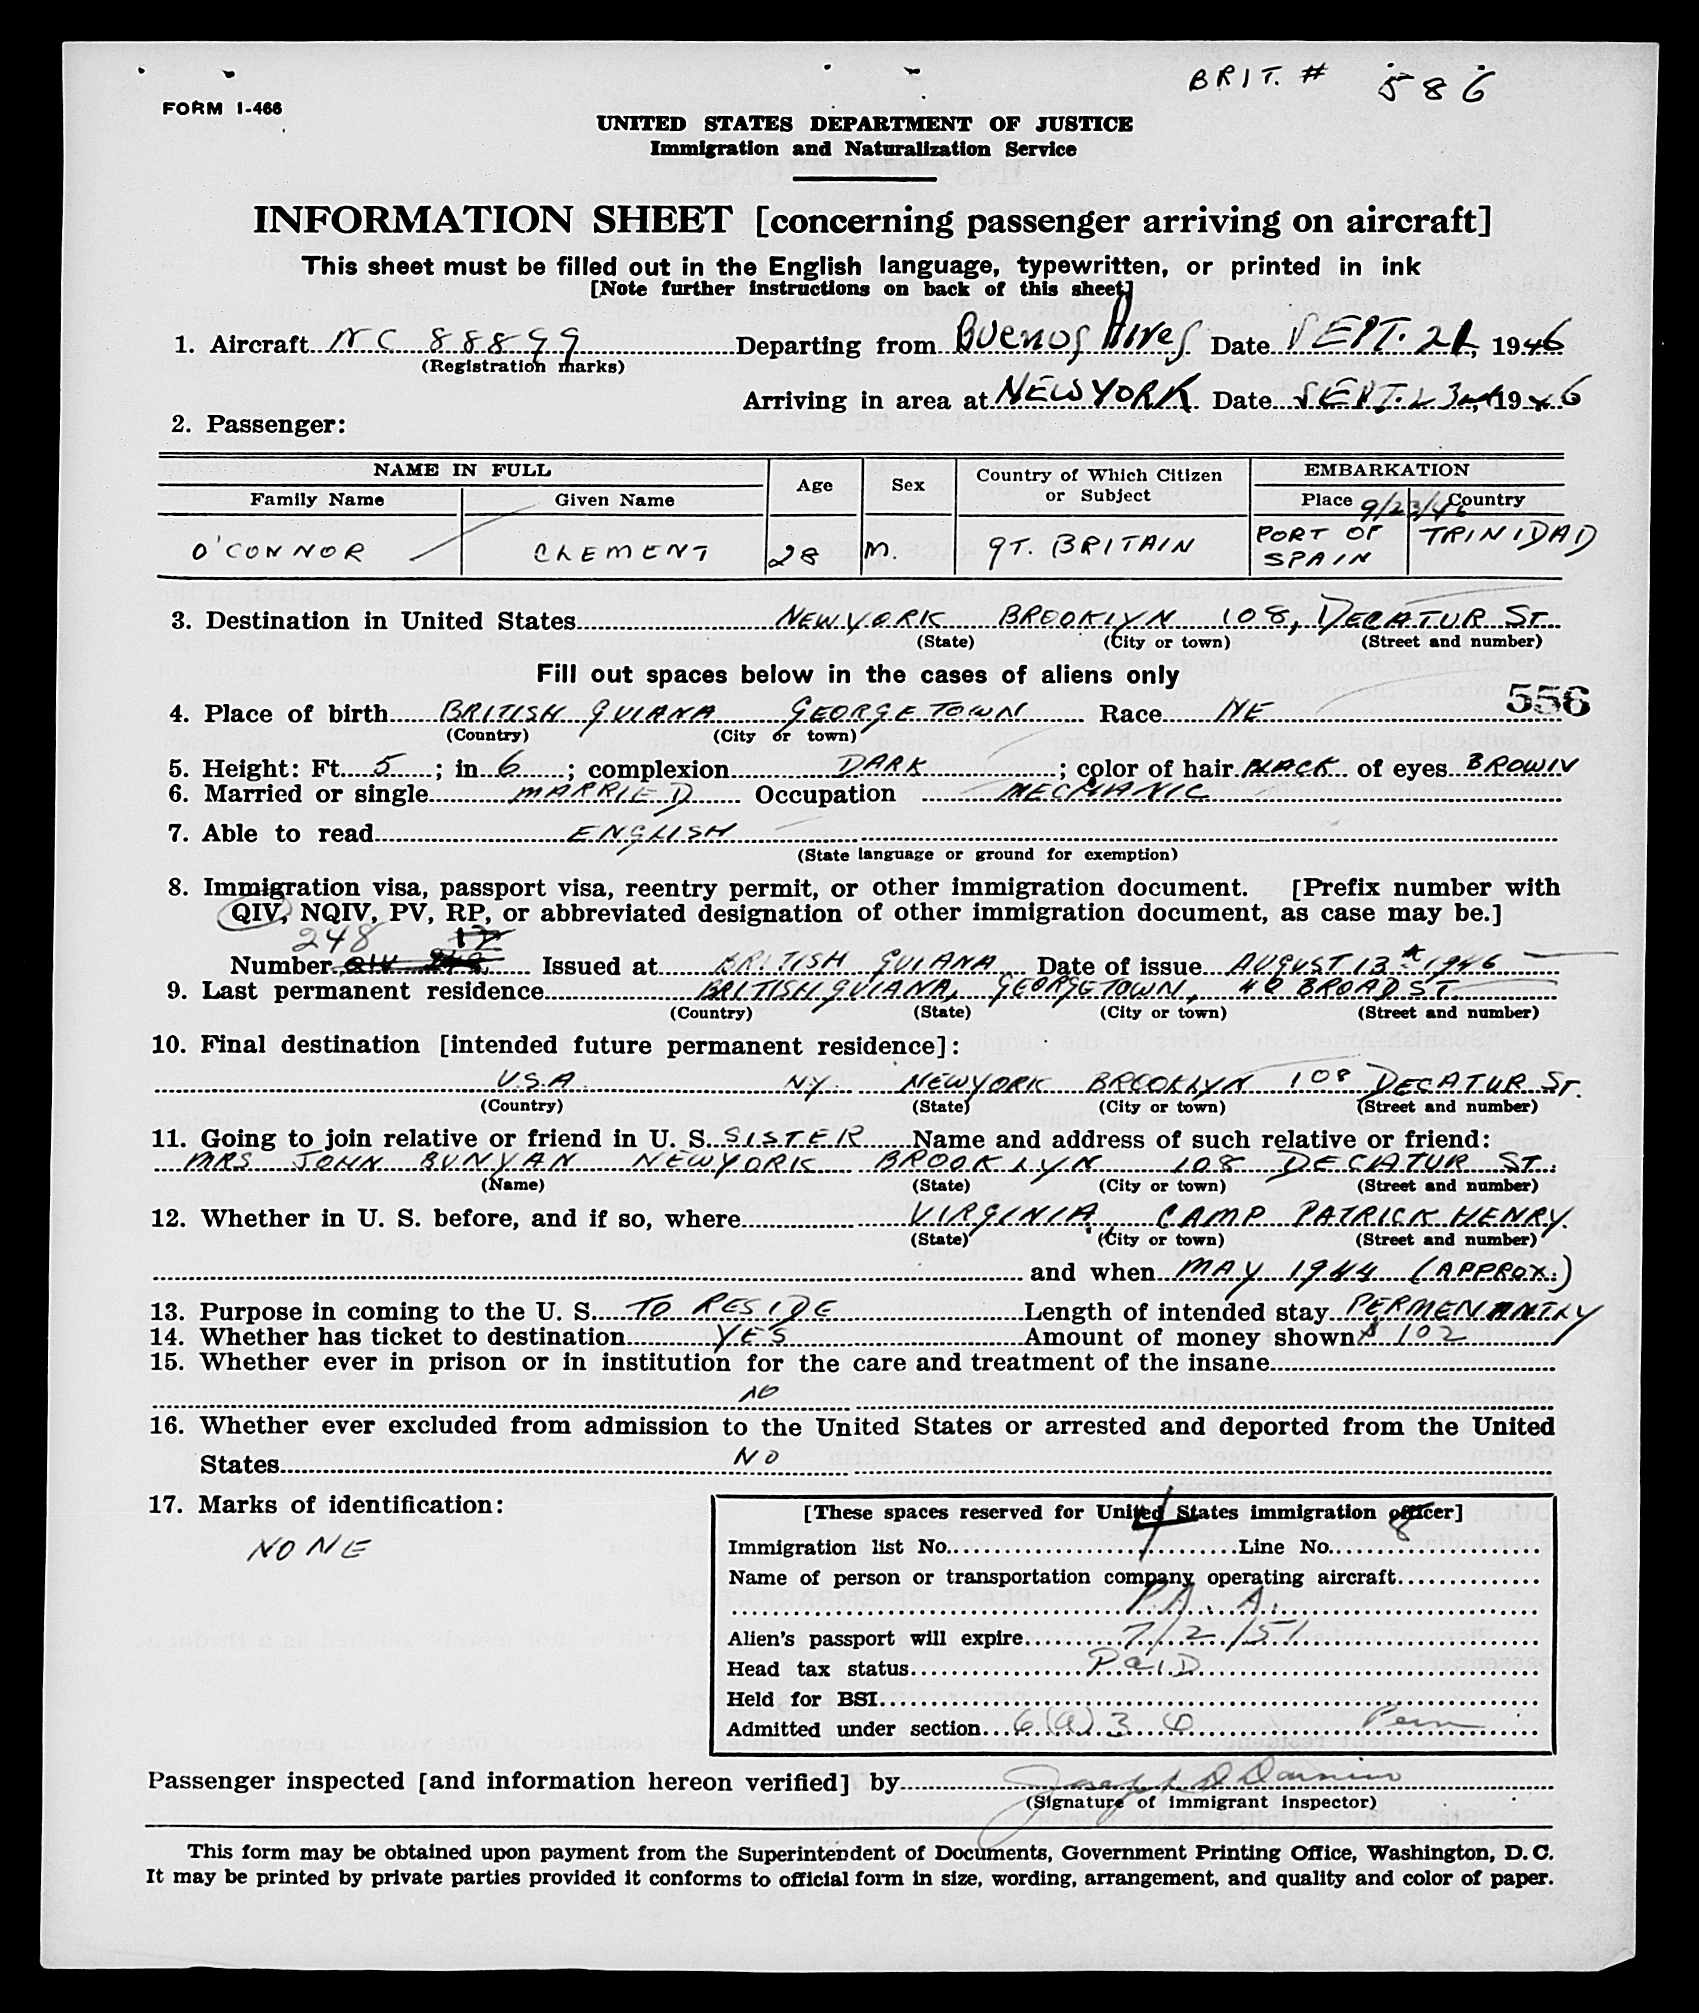 BRIT. # 586
FORM I-466
UNITED STATES DEPARTMENT OF JUSTICE
Immigration and Naturalization Service
INFORMATION SHEET [concerning passenger arriving on aircraft]
This sheet must be filled out in the English language, typewritten, or printed in ink
[Note further instructions on back of this sheet]
1. Aircraft NC 88899 Departing from Buenos Aires Date SEPT. 21, 1946
(Registration marks)
Arriving in area at NEW YORK Date SEPT. 23, 1946
2. Passenger:
NAME IN FULL Age Sex Country of Which Citizen or Subject EMBARKATION
Family Name Given Name Place Country
9/23/46
O'CONNOR CLEMENT 28 M. GT. BRITAIN PORT OF SPAIN TRINIDAD
3. Destination in United States NEW YORK BROOKLYN 108, DECATUR ST.
(State) (City or town) (Street and number)
Fill out spaces below in the cases of aliens only
556
4. Place of birth BRITISH GUIANA GEORGETOWN Race NE
(Country) (City or town)
5. Height: Ft. 5; in. 6; complexion DARK; color of hair BLACK of eyes BROWN
6. Married or single MARRIED Occupation MECHANIC
7. Able to read ENGLISH
(State language or ground for exemption)
8. Immigration visa, passport visa, reentry permit, or other immigration document. [Prefix number with
QIV, NQIV, PV, RP, or abbreviated designation of other immigration document, as case may be.]
248 12
Number Issued at BRITISH GUIANA Date of issue AUGUST 13 1946
9. Last permanent residence BRITISH GUIANA, GEORGETOWN, 40 BROAD ST.
(Country) (State) (City or town) (Street and number)
10. Final destination [intended future permanent residece]:
U.S.A. N.Y. NEW YORK BROOKLYN 108 DECATUR ST.
(Country) (State) (City or town) (Street and number)
11. Going to join relative or friend in U. S. SISTER Name and address of such relative or friend:
MRS JOHN BUNYAN NEW YORK BROOKLYN 108 DECATUR ST.
(Name) (State) (City or town) (Street and number)
12. Whether in U. S. before, and if so, where VIRGINIA, CAMP PATRICK HENRY.
(State) (City or town) (Street and number)
and when MAY 1944 (APPROX.)
13. Purpose in coming to the U. S. TO RESIDE Length of intended stay PERMENANTLY
14. Whether has ticket to destination YES Amount of money shown $ 102
15. Whether ever in prison or in institution for the care and treatment of the insane
NO
16. Whether ever excluded from admission to the United States or arrested and deported from the United
States NO
17. Marks of identification:
NONE
[These spaces reserved for United States immigration officer]
Immigration list No. 1 Line No. 8
Name of person or transportation company operating aircraft
P.A.A.
Alien's passport will expire 7/2/51
Head tax status PaID
Held for BSI
Admitted under section 6(a)3 Perm
Passenger inspected [and information hereon verified] by Joseph
(Signature of immigrant inspector)
This form may be obtained upon payment from the Superintendent of Documents, Government Printing Office, Washington, D. C.
It may be printed by private parties provided it conforms to official form in size, wording, arrangement, and quality and color of paper.